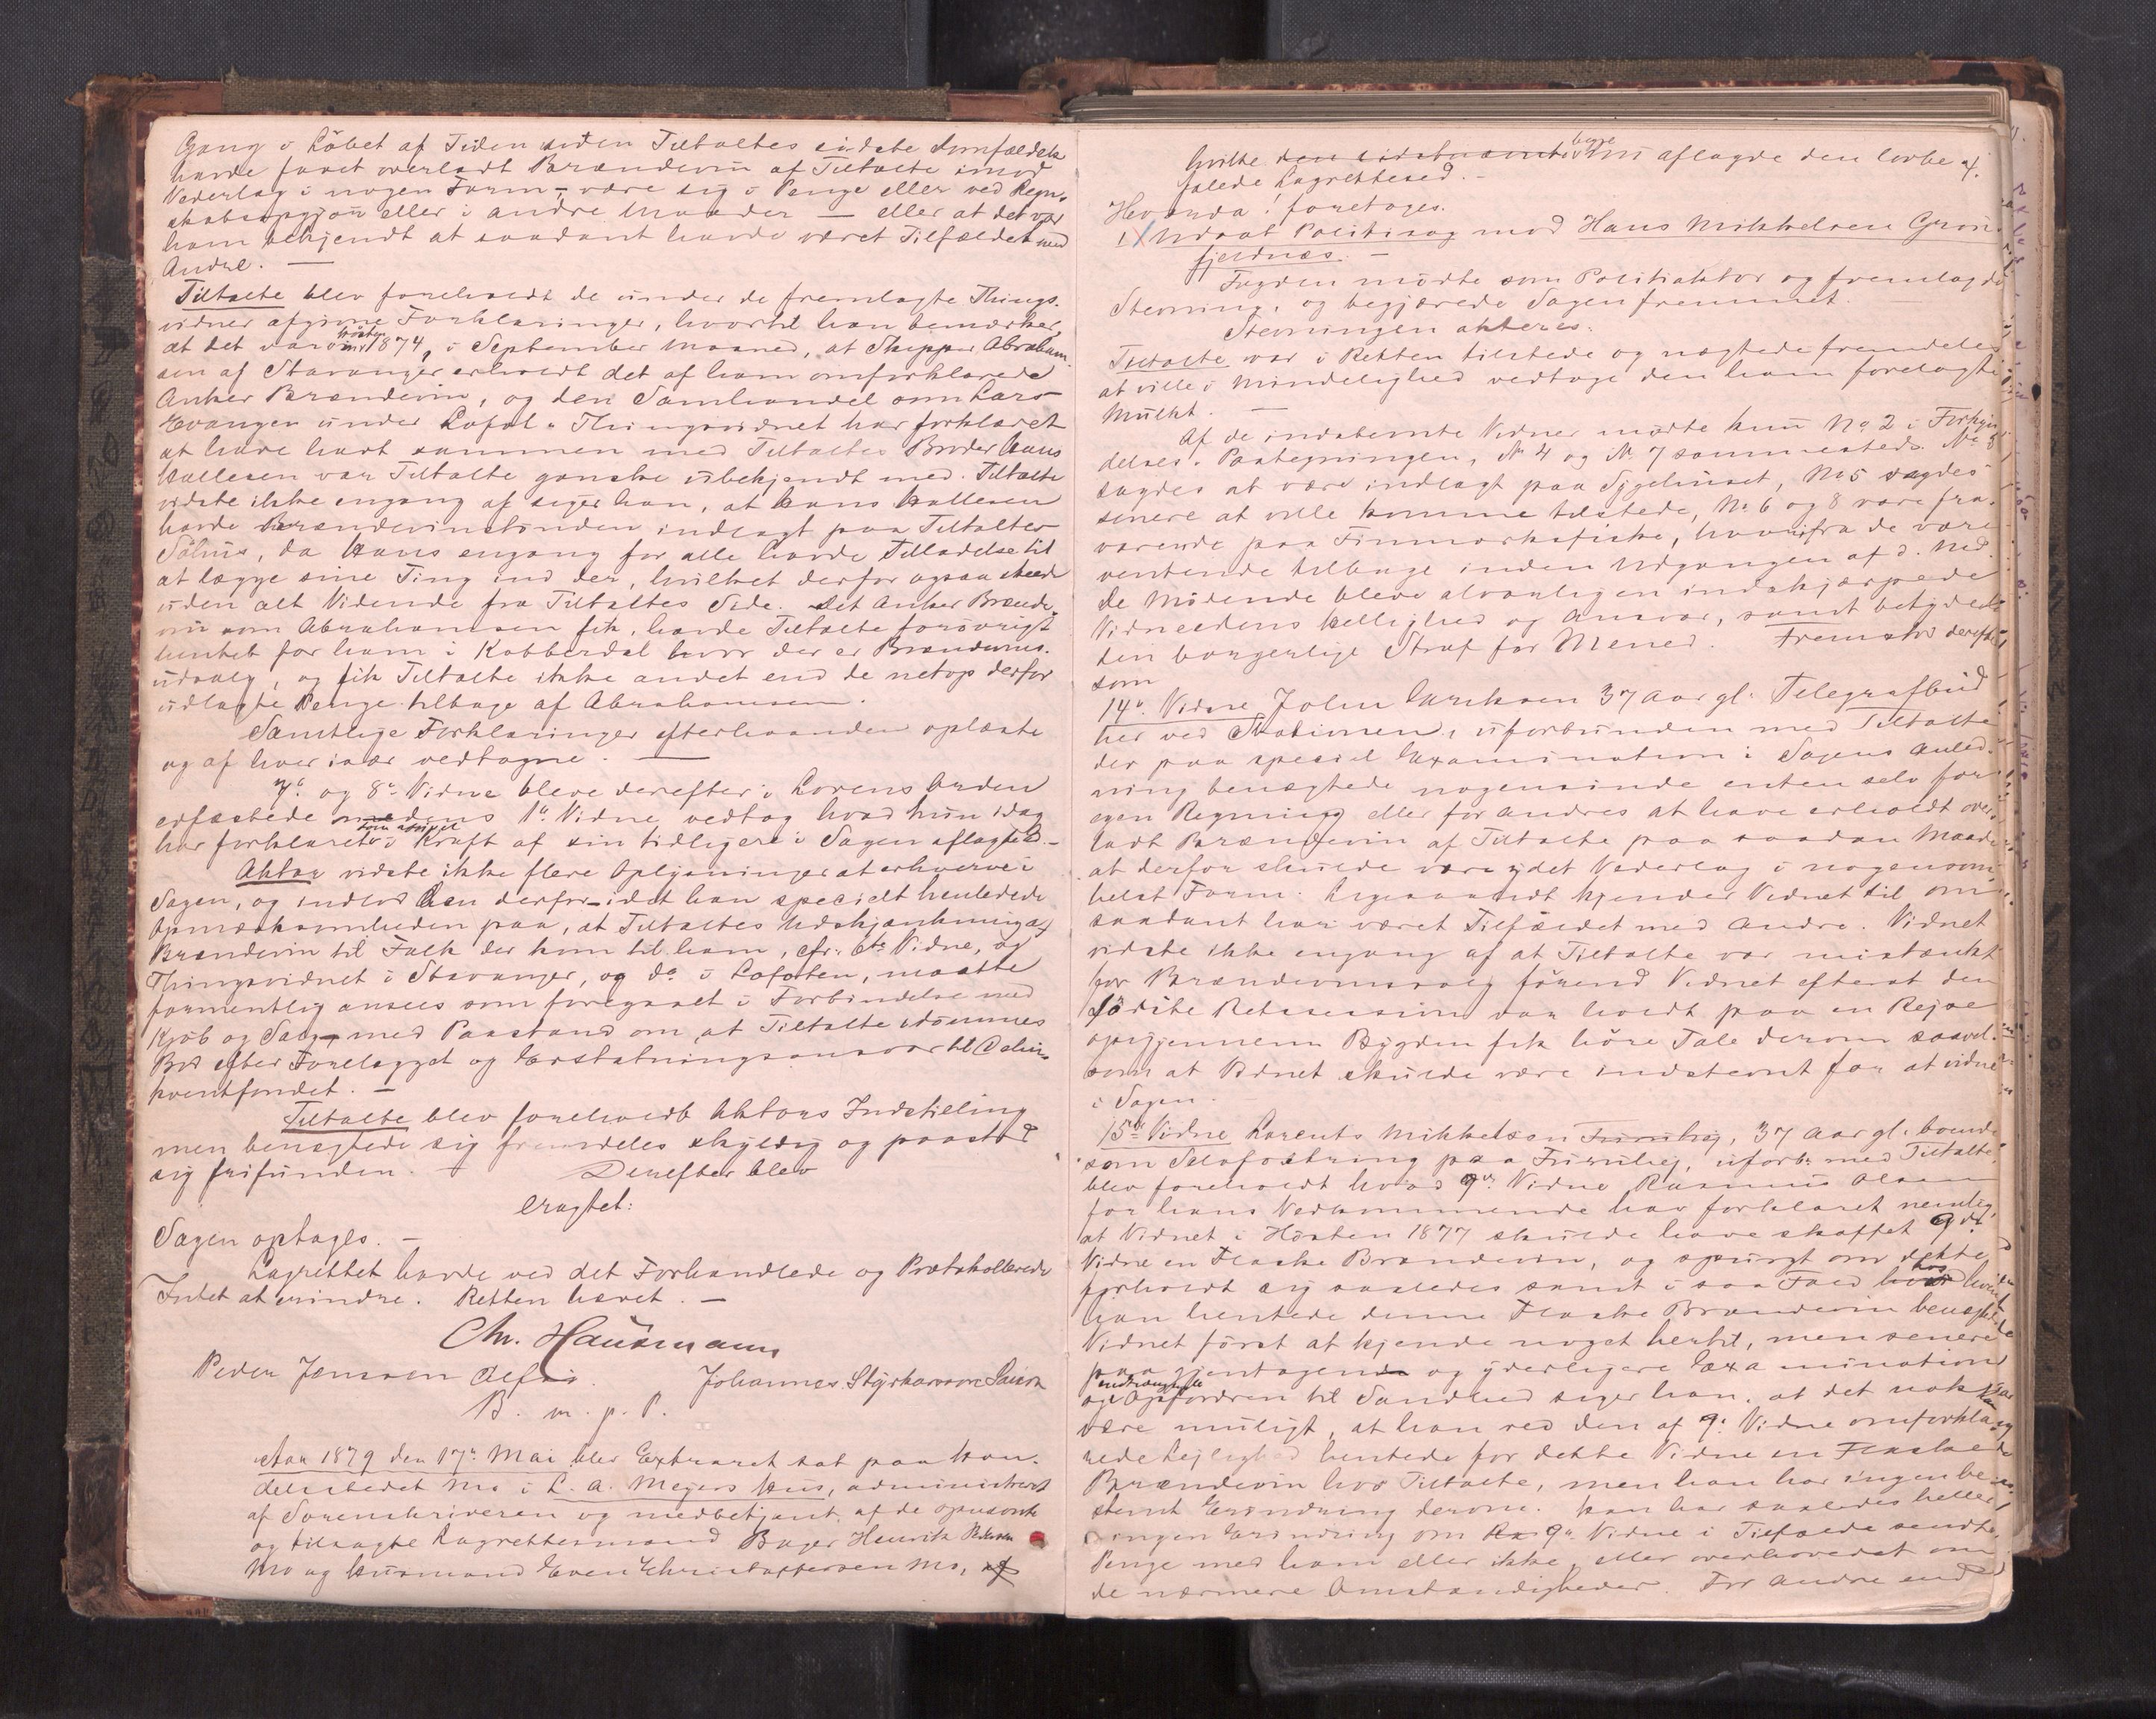 Gang i Löbet af Tiden siden Tiltaltes sidste Domfældelse
havde faaet overladt Brændeviin af Tiltalte imod
Vederlag i nogen Form – være sig i Penge eller ved Regn-
skabsopgjör eller i andre Maader — eller at det var
ham bekjendt at saadant havde været Tilfældet med
Andre. —
Tiltalte blev foreholdt de under de fremlagte Things-
vidner afgivne Forklaringer, hvortil han bemærker,
at det var om Hösten 1874, i September Maaned, at Skipper Abraham-
sen af Stavanger erholdt det af ham omforklarede
Anker Brændeviin, og den Samhandel som Lars
Evangen under Lofot-Thingsvidnet har forklaret
at have havt sammen med Tiltaltes Broder Hans
Kallesen var Tiltalte ganske ubekjendt med. Tiltalte
vidste ikke engang af siger han, at Hans Kallesen
havde Brændevinstönden indlagt paa Tiltaltes
Söhus, da Hans engang for alle havde Tilladelse til
at lægge sine Ting ind der, hvilket derfor ogsaa skede
uden alt Vidende fra Tiltaltes Side. Det Anker Brænde-
viin som Abrahamsen fik, havde Tiltalte forövrigt
hentet for ham i Kobberdal hvor der er Brændeviins-
udsalg, og fik Tiltalte ikke andet end de netop derfor
udlagte Penge tilbage af Abrahamsen.
Samtlige Forklaringer efterhaanden oplæste
og af hver især vedtagne. —
7de og 8de Vidne bleve derefter i Lovens Orden
edfæstede medens 1ste Vidne vedtog hvad hun idag
har forklaret som aflagt i Kraft af sin tidligere i Sagen aflagte Ed. —
Aktor vidste ikke flere Oplysninger at erhverve i
Sagen, og indlod den derfor – idet han specielt henledede
Opmærksomheden paa, at Tiltaltes Udskjænkning af
Brændeviin til Folk der kom til ham, cfr. 6te Vidne, og
Thingsvidnet i Stavanger, og do i Lofoten, maatte
formentlig ansees som foregaaet i Forbindelse med
Kjöb og Salg – med Paastand om, at Tiltalte idömmes
Bod efter Forelægget og Erstatningsansvar til Delin-
kventfondet. —
Tiltalte blev foreholdt Aktors Indstilling
men benægtede sig fremdeles skyldig og paastod
sig frifunden. Derefter blev
eragtet:
Sagen optages. —
Lagrettet havde ved det Forhandlede og Protokollerede
Intet at erindre. Retten hævet. —
Chr. Hausmann
Peder Jensson Johannes Styrkarsson
B. m. p. P.
Aar 1879 den 17de Mai blev Extraret sat paa Han-
delsstedet Mo i L. A. Meyers Hus, administreret
af Sorenskriveren og medbetjent af de opnævnte
og tilsagte Lagrettesmænd Bager Henrik Pedersen
Mo og Husmand Even Christoffersen Mo, af
hvilke den sidstnævnte begge nu aflagde den lovbe af-
falede Lagrettesed. —
Hvorda! foretoges.
1/ Udsat Politisag mod Hans Mikkelsen Grön-
fjeldnæs. —
Fogden mödte som Politiaktor og fremlagde
Stevning, og begjærede Sagen fremmet.
Stevningen akteres.
Tiltalte var i Retten tilstede og nægtede fremdeles
at ville i Mindelighed vedtage den ham forelagte
Mulkt. —
Af de indstevnte Vidner mödte kun No 2 i Forkyn-
delses-Paategningen, No 4 og No 7 sammesteds. No 3
sagdes at være indlagt paa Sygehuset, No 5 sagdes
senere at ville komme tilstede, No 6 og 8 vare fra-
værende paa Finmarksfiske, hvorfra de være
ventende tilbage inden Udgangen af d. Md.
De Mödende bleve alvorligen indskjærpede
Vidneedens Hellighed og Ansvar, samt betydede
den borgerlige Straf for Mened. Fremstod derefter
som
14de Vidne John Eriksen 37 Aar gl. Telegrafbud
her ved Stationen, uforbunden med Tiltalte
der paa speciel Examination i Sagens Anled-
ning benægtede nogensinde enten selv for
egen Regning eller for Andres at have erholdt over-
ladt Brændeviin af Tiltalte paa saadan Maade
at derfor skulde være ydet Vederlag i nogensom-
helst Form. Ligesaalidt kjender Vidnet til om
saadant har været Tilfældet med Andre. Vidnet
vidste ikke engang af at Tiltalte var mistænkt
for Brændeviinssalg förend Vidnet efterat den
sidste Retssession var holdt paa en Rejse
opigjennem Bygden fik höre Tale derom saavel-
som at Vidnet skulde være indstevnt for at vidne
i Sagen.
15de Vidne Lorents Mikkelsen Furuhej, 37 Aar gl. boende
som Selvfostring paa Furuhej, uforb. med Tiltalte,
blev foreholdt hvad 9de Vidne Rasmus Olsen
for hans Vedkommende har forklaret nemlig,
at Vidnet i Hösten 1877 skulde have skaffet 9de
Vidne en Flaske Brændeviin, og spurgt om dette
forholdt sig saaledes samt i saa Fald hos hvem
han hentede denne Flaske Brændeviin benægtede
Vidnet först at kjende noget hertil, men senere
paa gjentagende og yderligere Examination
og indtrængende Opfordren til Sandhed siger han, at det nok kan
være muligt, at han ved den af 9de Vidne omforkla-
rede Lejlighed hentede for dette Vidne en Flaske
Brændeviin hos Tiltalte, men han har ingen be-
stemt Erindring derom. Han har saaledes heller
ingen Erindring om 9de Vidne i Tilfælde sendte
Penge med ham eller ikke, eller overhovedet om
de nærmere Omstændigheder. For Andre end